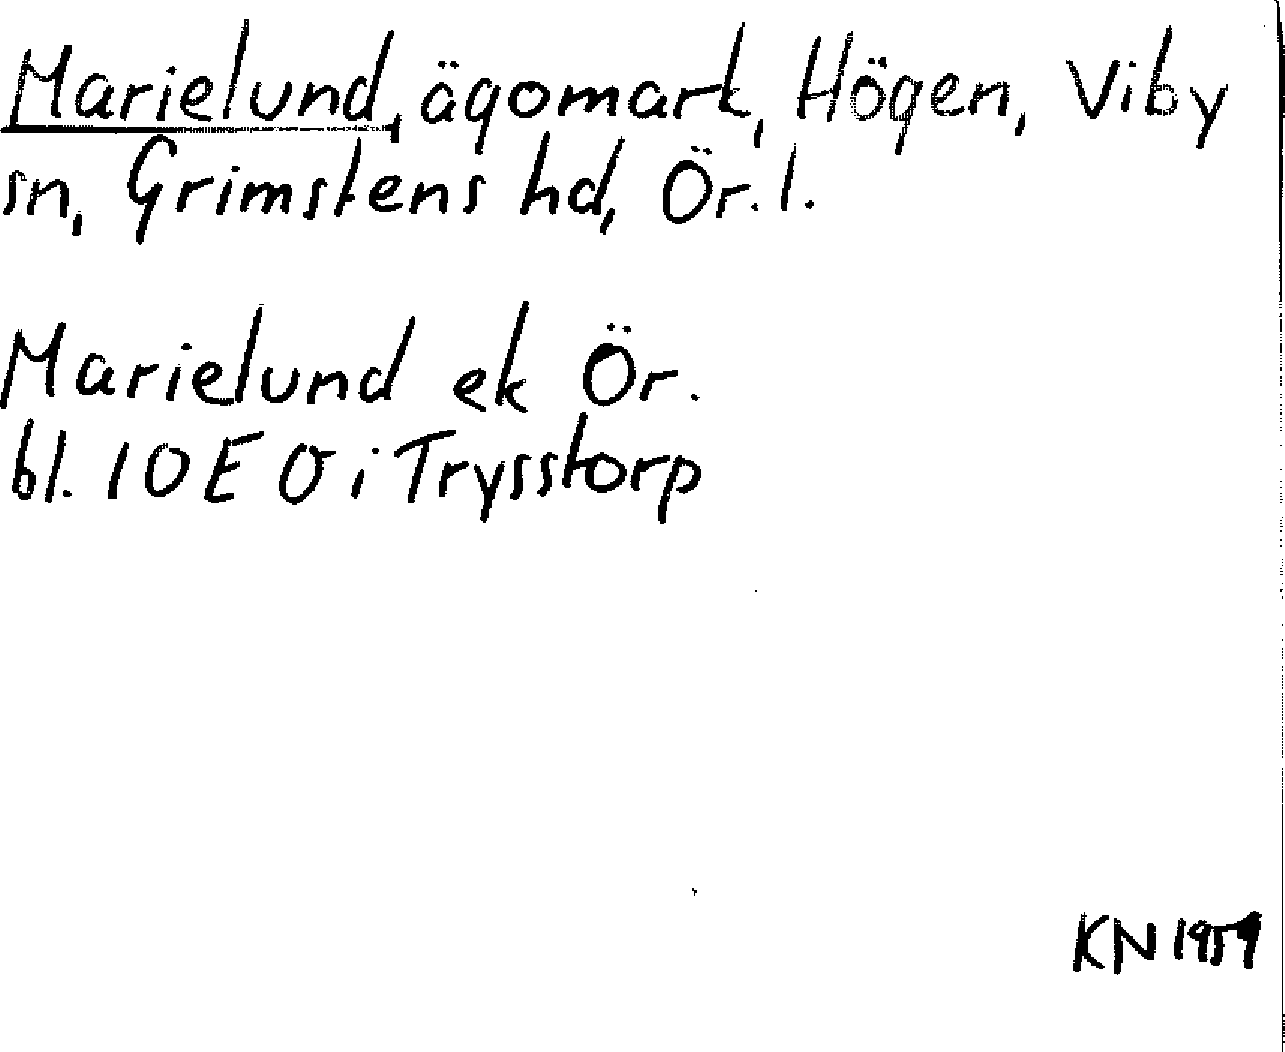 Marielund, ägomark, Högen, Viby
sn, Grimstens hd, Ör. l.
Marielund ek Ör.
bl. 10 E 0 i Trysstorp
KN 1959